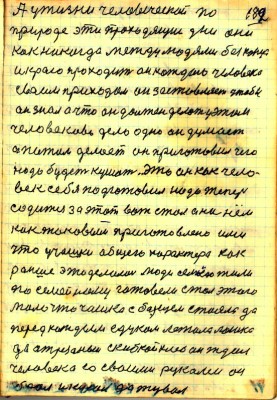 182
А у жизни человеческой по
природе эти проходящие дни они
как никогда между людями без конца
и краю проходит он каждого человека
своим приходом он заставляет чтобы
он знал а что он должен делать этим
человекова дело одно он думает
а потом делает он приготовил чего
надо будет кушат. Это он как чело-
век себя подготовил надо теперь
садится за этот вот стол а на нём
как таковый приготовлено или
что у чашки общего характера как
раньше это делалось люди семьёю жили
по семейному готовели стол этого
мало что чашка с борщём стояла да
перед каждым едуком лежала ложка
да отрезаный скибкой хлеб он ждал
человека со своими руками он
брал и кусал да жувал